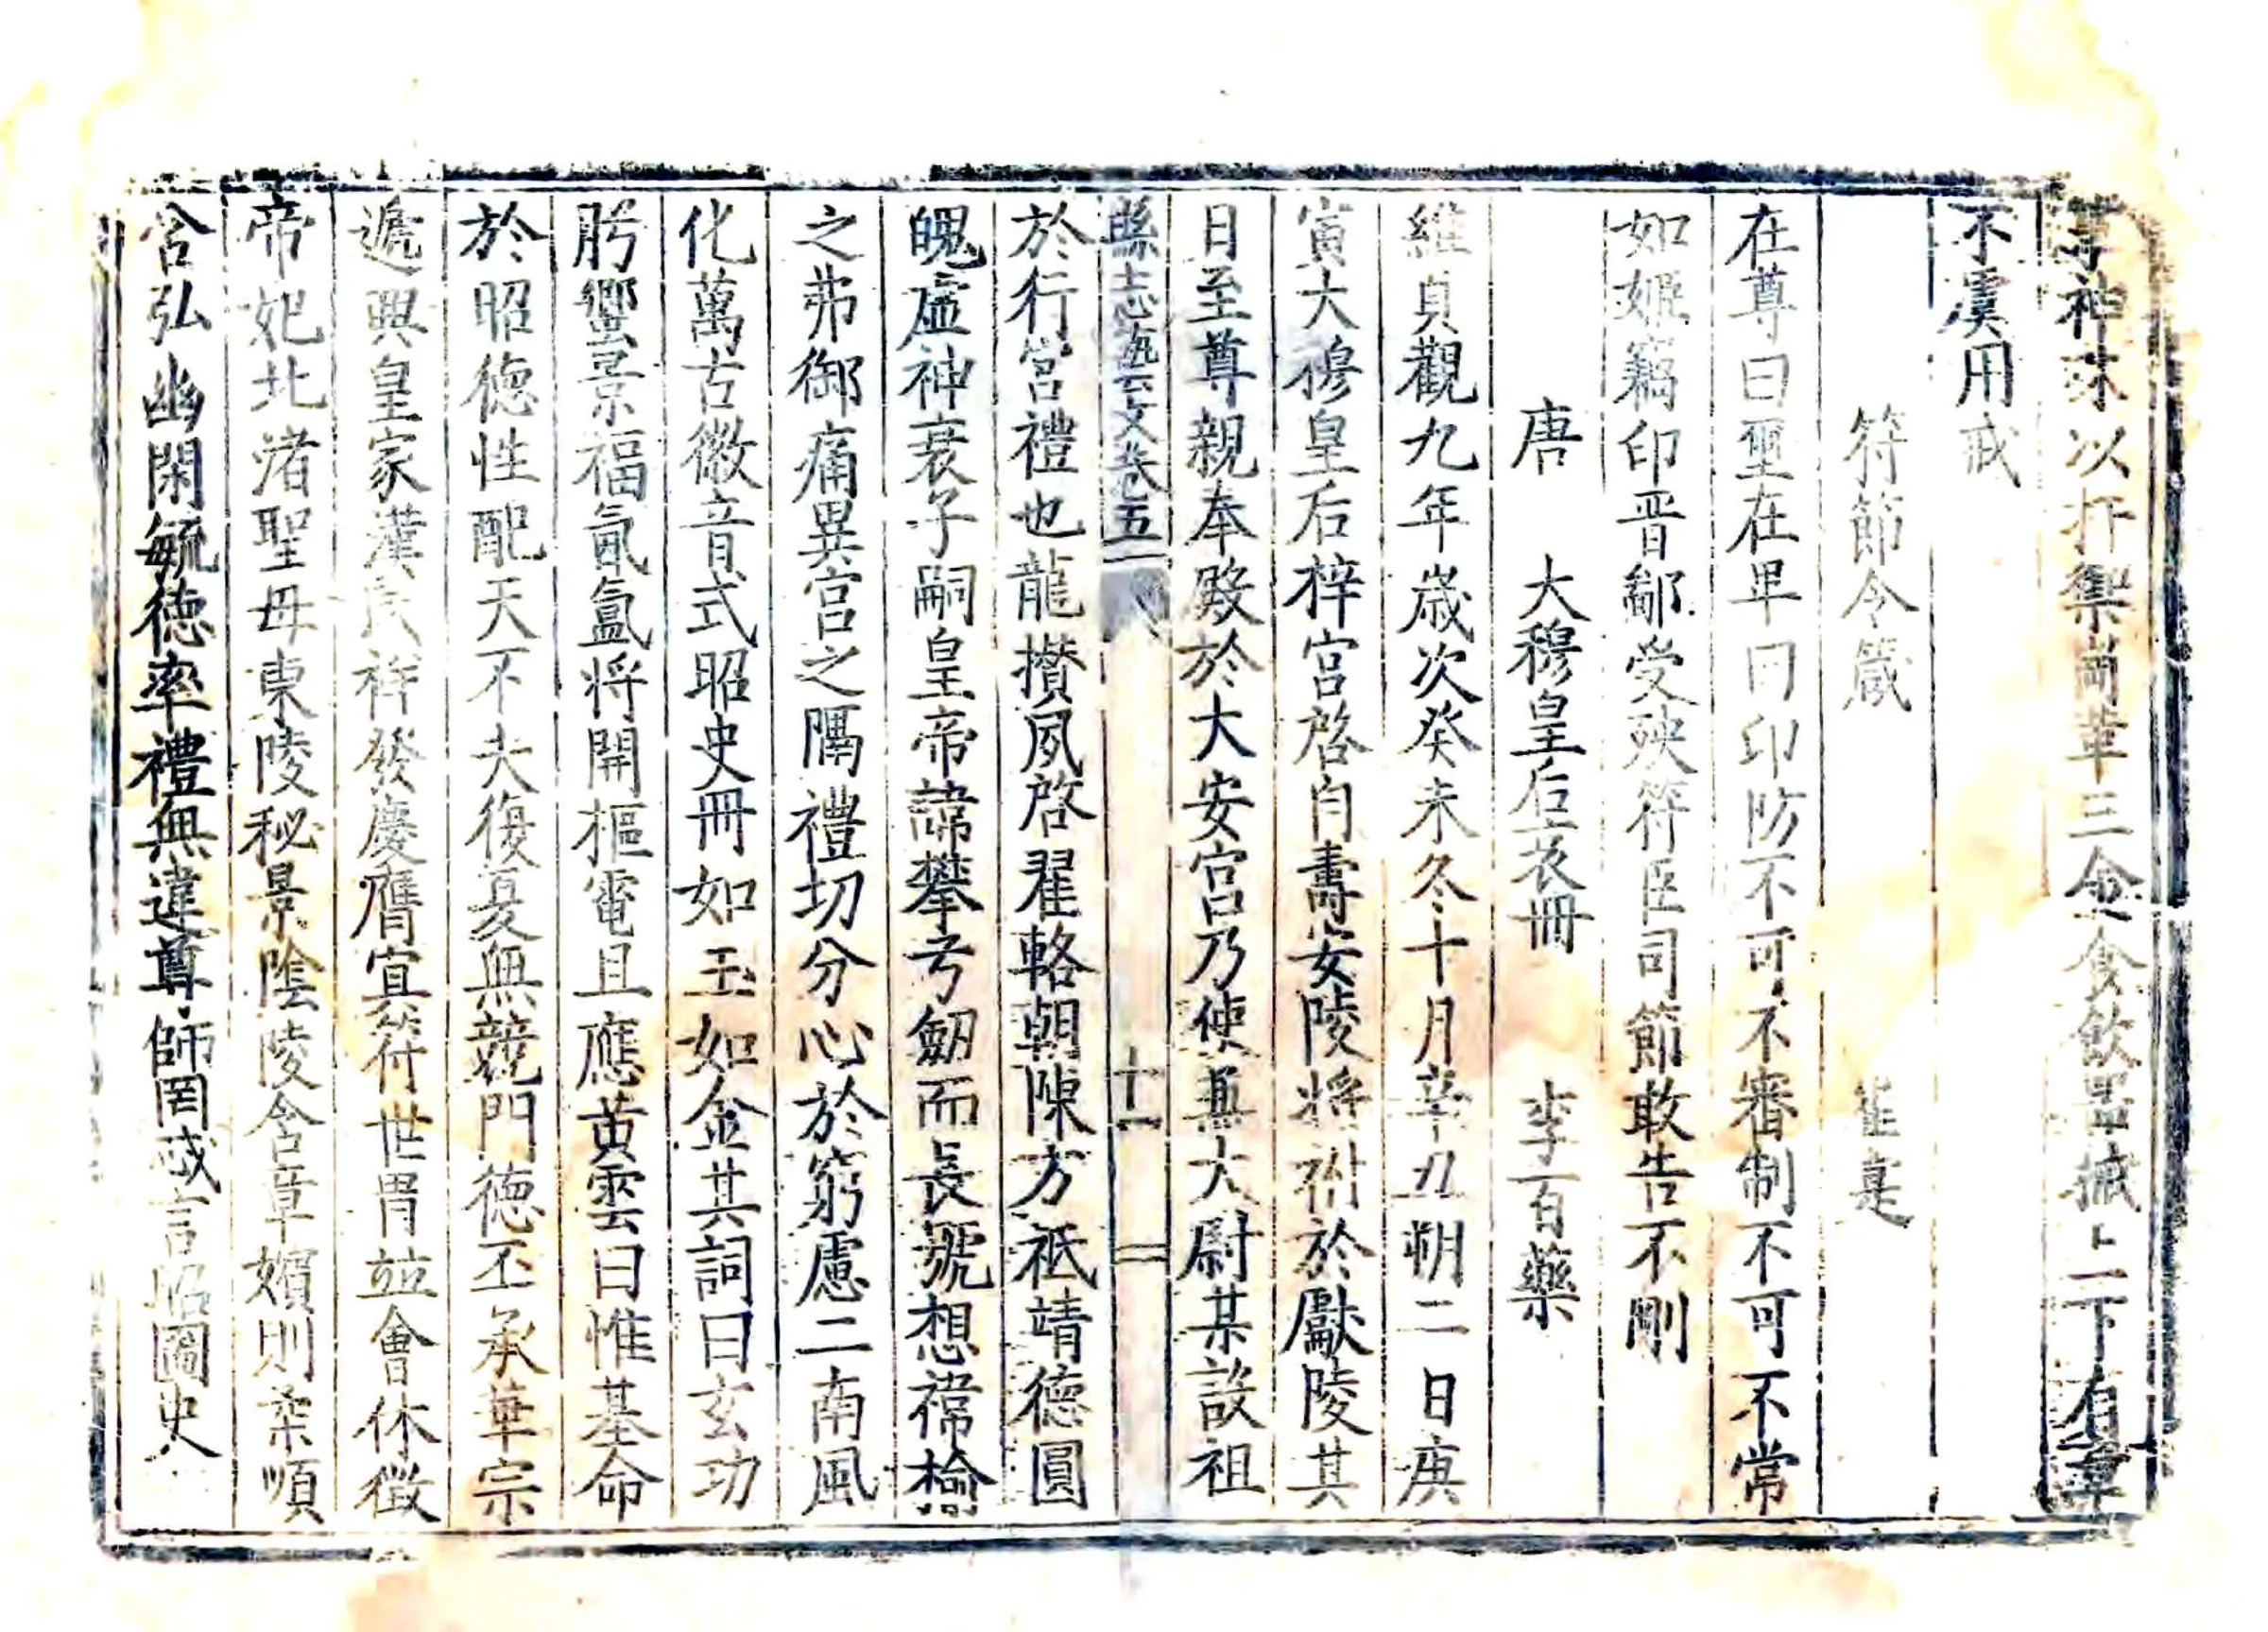 尊神保以扞禦尚華三金食飲器械上下有章
不虞用戒
符節令箴 崔寔
在尊曰璽在卑曰印防不可不審制不可不常
如姬竊印晋鄙受殃符臣司節敢告不剛
唐 大穆皇后哀冊 李百藥
維貞觀九年歳次癸未冬十月辛丑朔二日庚
寅大穆皇后梓宮啓自壽安陵將祔於獻陵其
日至尊親奉殿於大安宮乃使兼大尉某設祖
縣志逸云文卷五 十一
於行宮禮也龍攅夙啓翟輅朝陳方祗靖德圓
魄虛神哀子嗣皇帝諱攀弓劒而長號想褘楡
之弗御痛異宮之隅禮切分心於窮慮二南風
化萬古徽音式昭史冊如玉如金其詞曰玄功
肹蠁景福氤氳將開樞電且應黃雲曰惟基命
於昭德性配天不夫復夏無競門德丕承華宗
遞興皇家漢氏祥發慶膺寘符世胄竝會休徵
帝妃北渚聖母東陵秘景陰陵含章嬪則柔順
含弘幽閑毓德率禮無違尊師罔忒言昭圖史